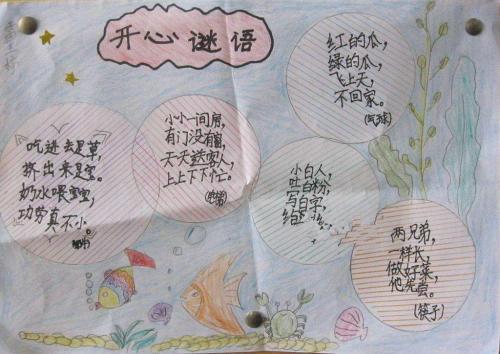 开心谜语
吃进去是草,
挤出来是宝。
奶水喂宝宝,
功劳真不小。
小小一间房,
有门没有窗,
天天送客人,
上上下下忙。
红的瓜,
绿的瓜,
飞上天,
不回家。
(气球)
小白人,
吐白粉,
写白字,
两兄弟,
一样长,
做好菜,
他先尝。
(筷子)